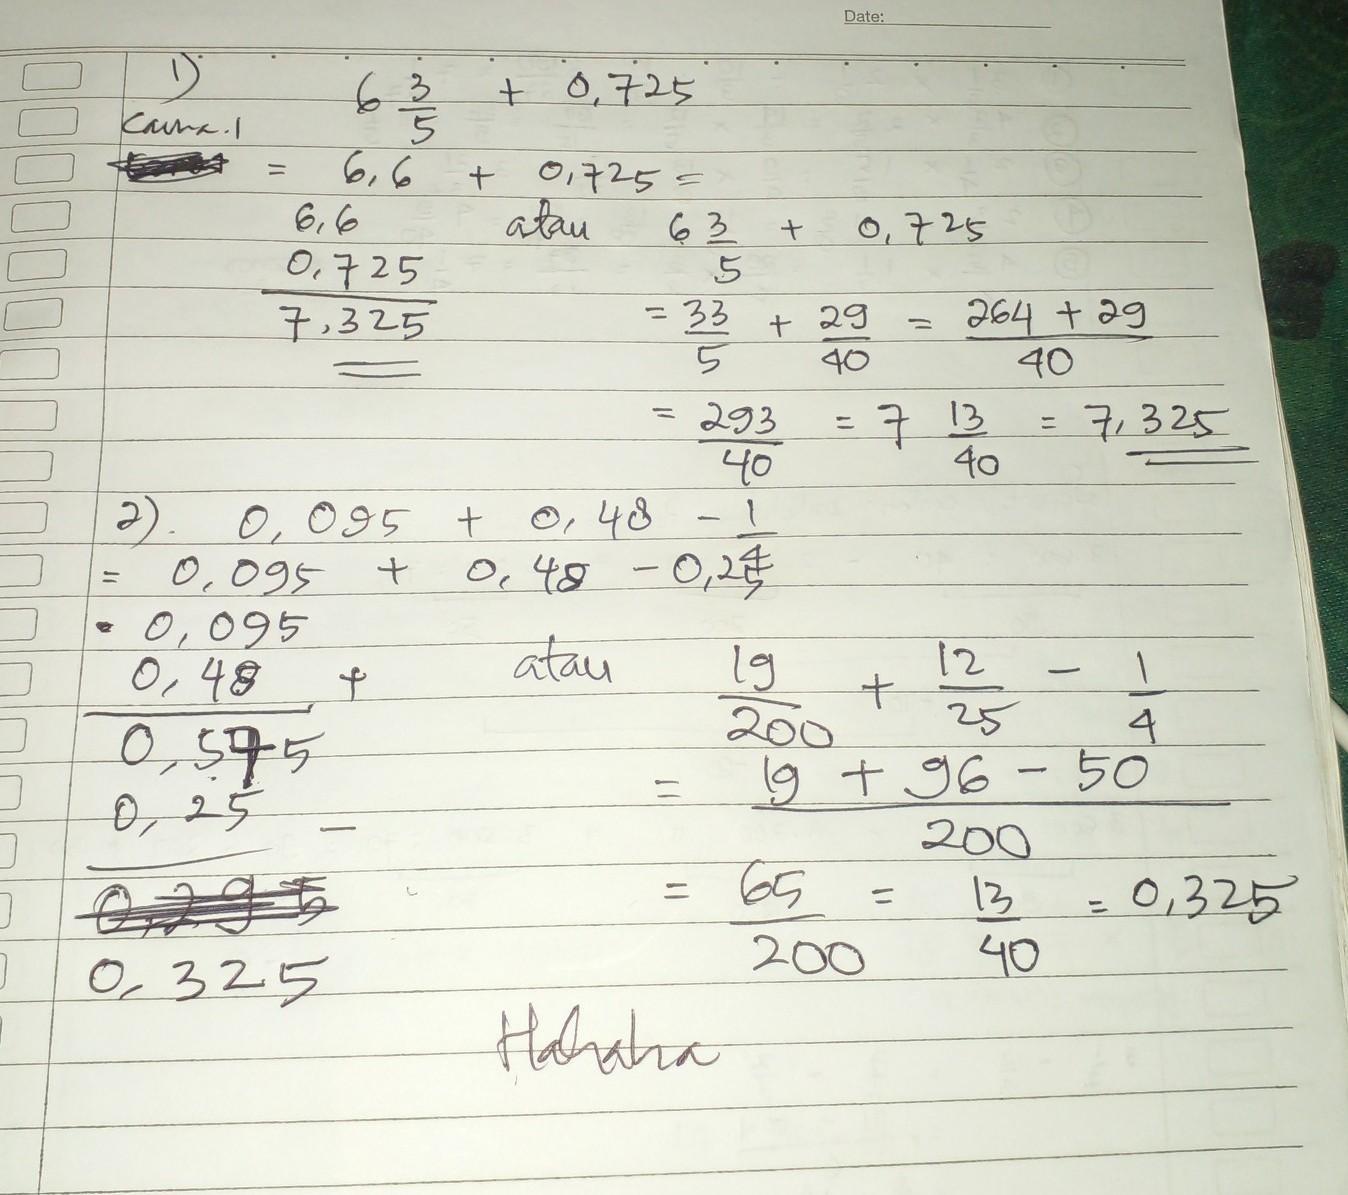 Date:
1) 6 3/5 + 0,725
= 6,6 + 0,725 =
6,6 atau 6 3/5 + 0,725
0,725
7,325 = 33/5 + 29/40 = 264 + 29/40
= 293/40 = 7 13/40 = 7,325
2). 0,095 + 0,48 - 1/4
= 0,095 + 0,48 - 0,25
0,095
0,48 + atau 19/200 + 12/25 - 1/4
0,575 = 19 + 96 - 50/200
0,25 -
= 65/200 = 13/40 = 0,325
0,325
Hahaha